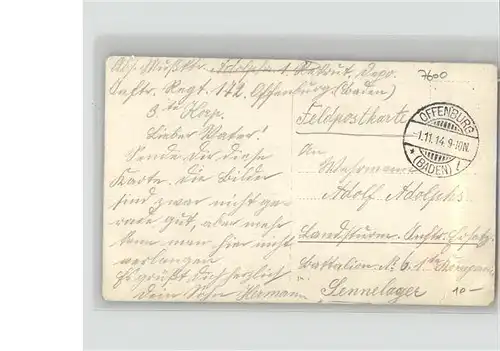 Abs. Muskt. Adolphs 1. Rekrut. Depo.
Inftr. Regt. 172. Offenburg (Baden)
3te Korp.
Lieber Vater!
Sende Dir diese
Karte. die Bilder
sind zwar nicht ge-
rade gut, aber mehr
kann man hier nicht
verlangen
Es grüßt Dich herzlich
Dein Sohn Hermann
7600
Feldpostkarte
OFFENBURG
1.11.14.9-10N.
* (BADEN) 1
An
Wehrmann
Adolf Adolphs
Landsturm. Inftr. Ersatz-
Battalion No 6. 1te Kompanie
Sennelager
10-